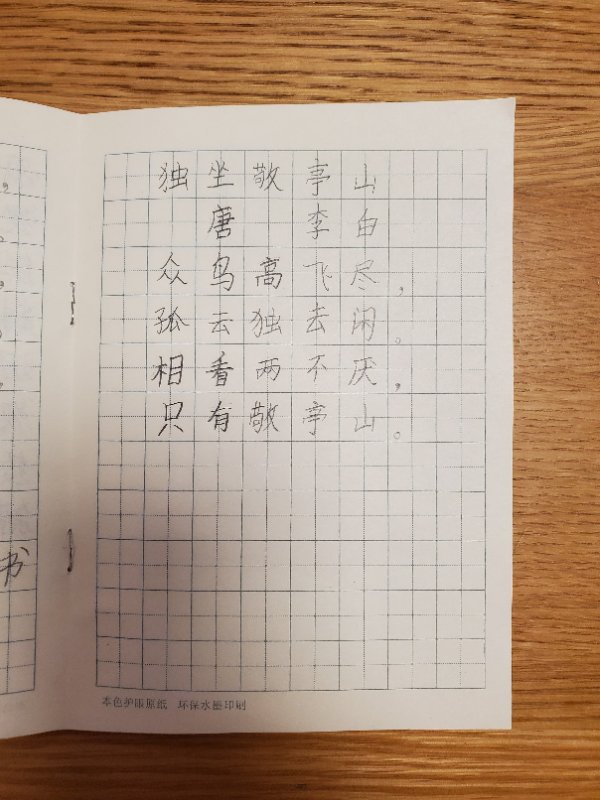 独坐敬亭山
唐 李白
众鸟高飞尽，
孤云独去闲。
相看两不厌，
只有敬亭山。
书
本色护眼原纸 环保水墨印刷